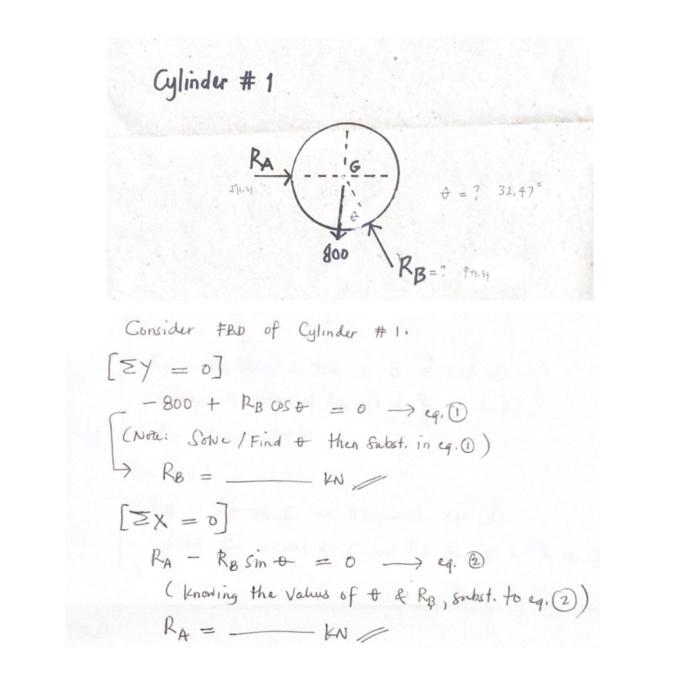 Cylinder # 1
RA
G
θ = ? 32.47°
θ
800
RB = ?
Consider FBD of Cylinder # 1.
[ΣY = 0]
-800 + RB cos θ = 0 → eq. ①
(Note: Solve / Find θ then subst. in eq. ①)
RB = ______ KN
[ΣX = 0]
RA - RB sin θ = 0 → eq. ②
( Knowing the values of θ & RB, subst. to eq. ②)
RA = ______ KN